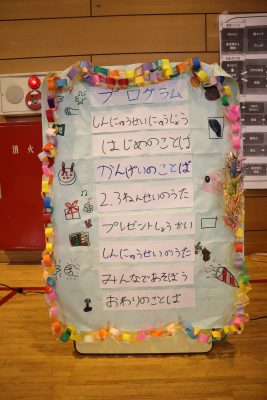 プログラム
しんにゅうせいにゅうじょう
はじめのことば
かんげいのことば
2.3ねんせいのうた
プレゼントしょうかい
しんにゅうせいのうた
みんなであそぼう
おわりのことば
消火